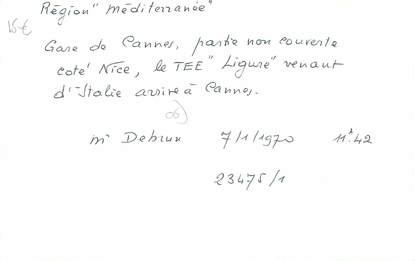 Région "Méditerranée"
15 €
Gare de Cannes, partie non couverte
coté Nice, le TEE "Ligure" venant
d'Italie arrive à Cannes.
Mr Debrun 7/1/1970 11h42
23475/1